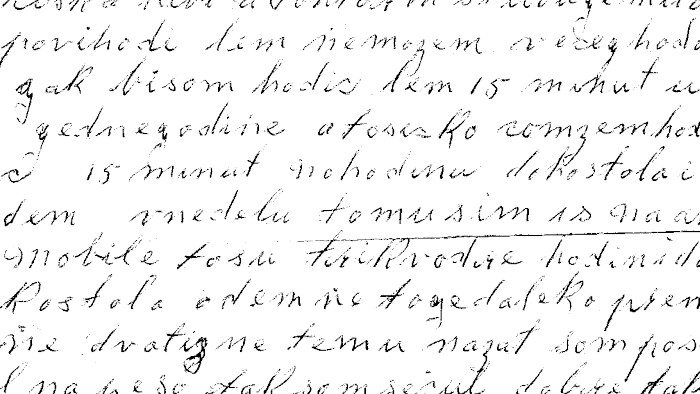 povihode lem nemozem veceghoda
gak bisom hodic lem 15 minut u
gednegodine atosisko comzemhod
c 15 minut nohodinu dokostola i
dem vnedelu tomusim is na a
mobile tosu trikvodre hodini do
kostola odem netogedaleko prem
ne dvatizne temu nazat som pos
l na peso tak som secul dobre tak